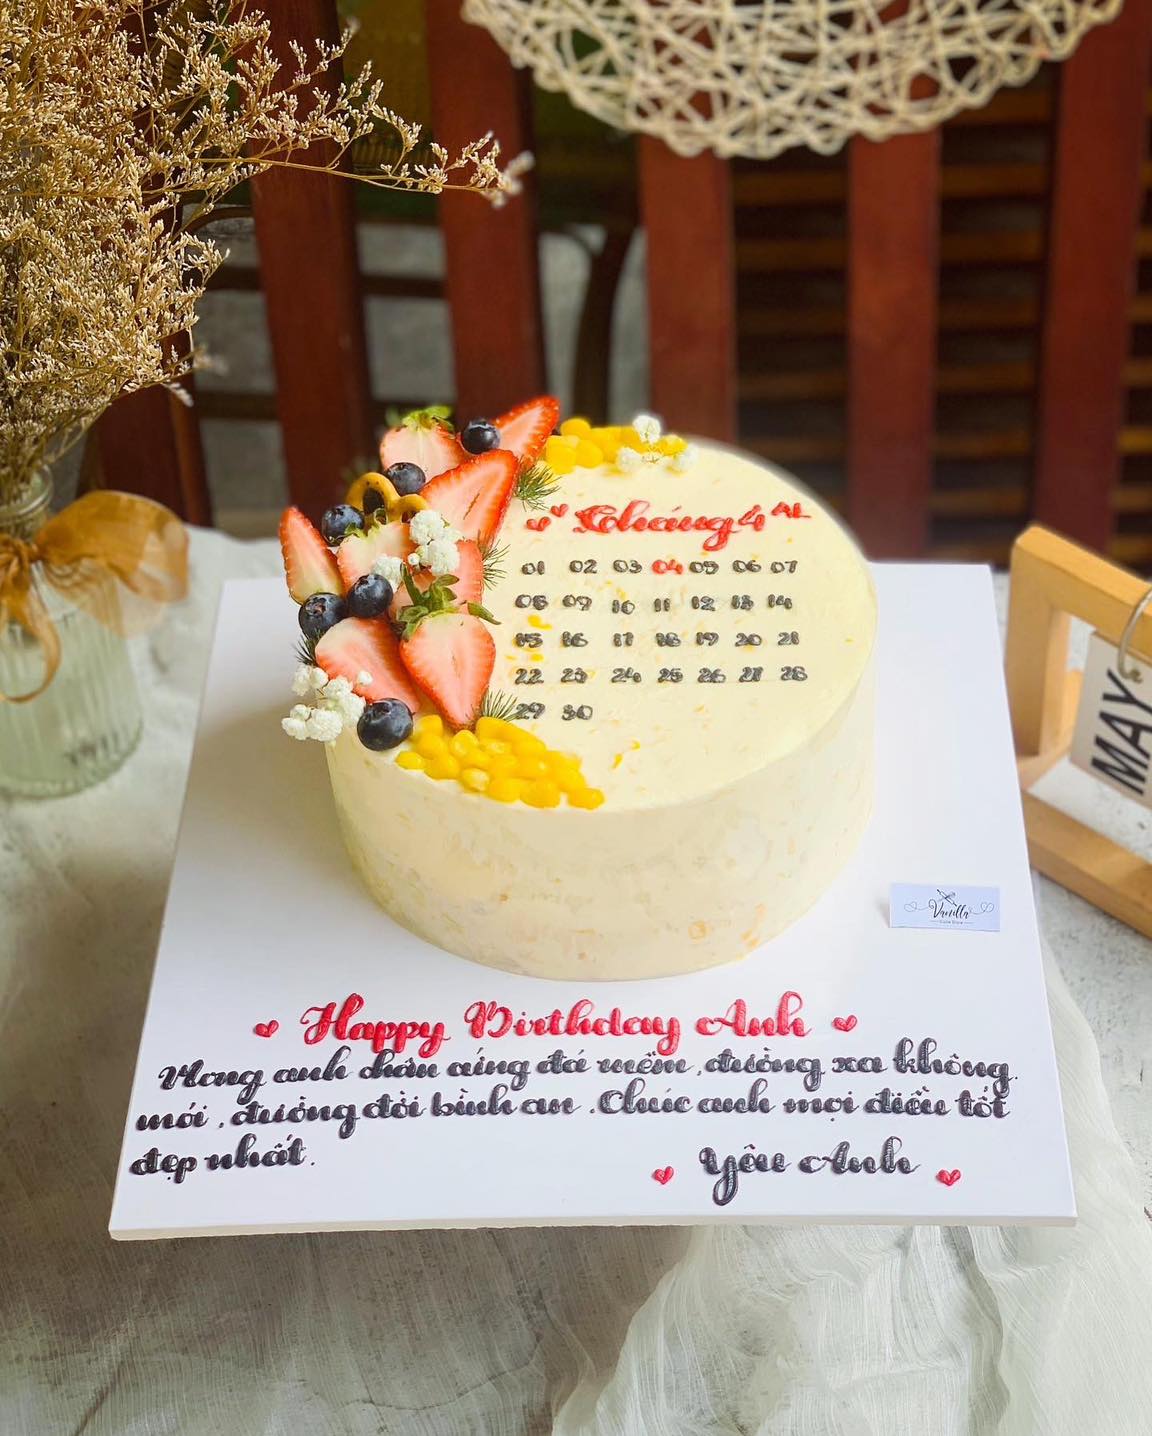 Tháng 4 AL
01 02 03 04 05 06 07
08 09 10 11 12 13 14
15 16 17 18 19 20 21
22 23 24 25 26 27 28
29 30
MAY
Vanilla
Happy Birthday Anh
Mong anh chân cứng đá mềm, đường xa không
mỏi, đường đời bình an. Chúc anh mọi điều tốt
đẹp nhất.
Yêu Anh